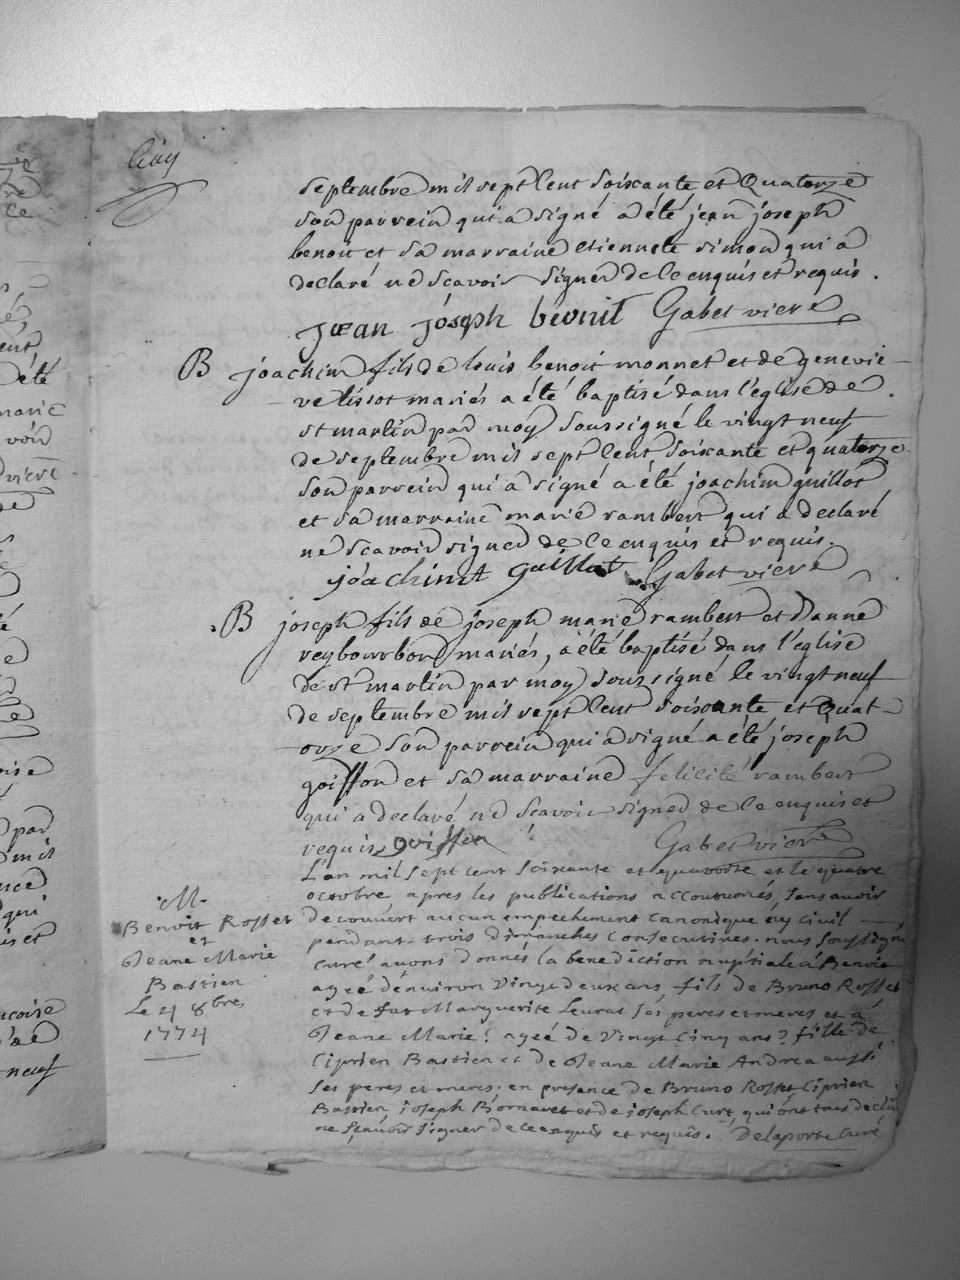 septembre mil sept Cent Soixante et Quatorze
son parrein qui a signé a été jean joseph
benoit et sa marraine etiennete simon qui a
declaré ne scavoir signer de ce enquis et requis.
Jean joseph benoit Gabet vicre
B joachim fils de louis benoit monnet et de genevie
ve tissot mariés a été baptisé dans l'eglise de
st martin par moy soussigné le vingt neuf
de septembre mil sept Cent soixante et quatorze
son parrein qui a signé a été joachim guillot
et sa marraine marie rambert qui a declaré
ne scavoir signer de ce enquis et requis.
joachim guillot Gabet vicre
B joseph fils de joseph marie rambert et d'anne
reybourbon mariés, a été baptisé dans l'eglise
de st martin par moy soussigné le vingt neuf
de septembre mil sept Cent soixante et Quat
orze son parrein qui a signé a été joseph
goiffon et sa marraine felicité rambert
qui a declaré ne scavoir signer de ce enquis et
requis goiffon Gabet vicre
M.
Benoit Rosset
et
Jeane Marie
Bastien
Le 4 8bres
1774
L'an mil sept cent soixante et quatorze et le quatre
octobre apres les publications accoutumés, sans avoir
decouvert aucun empechement canonique ny civil
pendant trois dimanches consecutives. nous soussigné
curé avons donnés la benediction nuptiale á Benoit
agée d'environ Vingt deux ans fils de Bruno Rosset
et de Marguerite Leurat ses peres et meres et á
Jeane Marie agée de Vingt Cinq ans fille de
Ciprien Bastien et de Jeane Marie Andrea aussi
ses peres et meres. en presence de Bruno Rosset Ciprien
Bastien joseph Bornavet et de joseph Curt qui ont tous declaré
ne scavoir signer de ce enquis et requis. Delaporte Curé